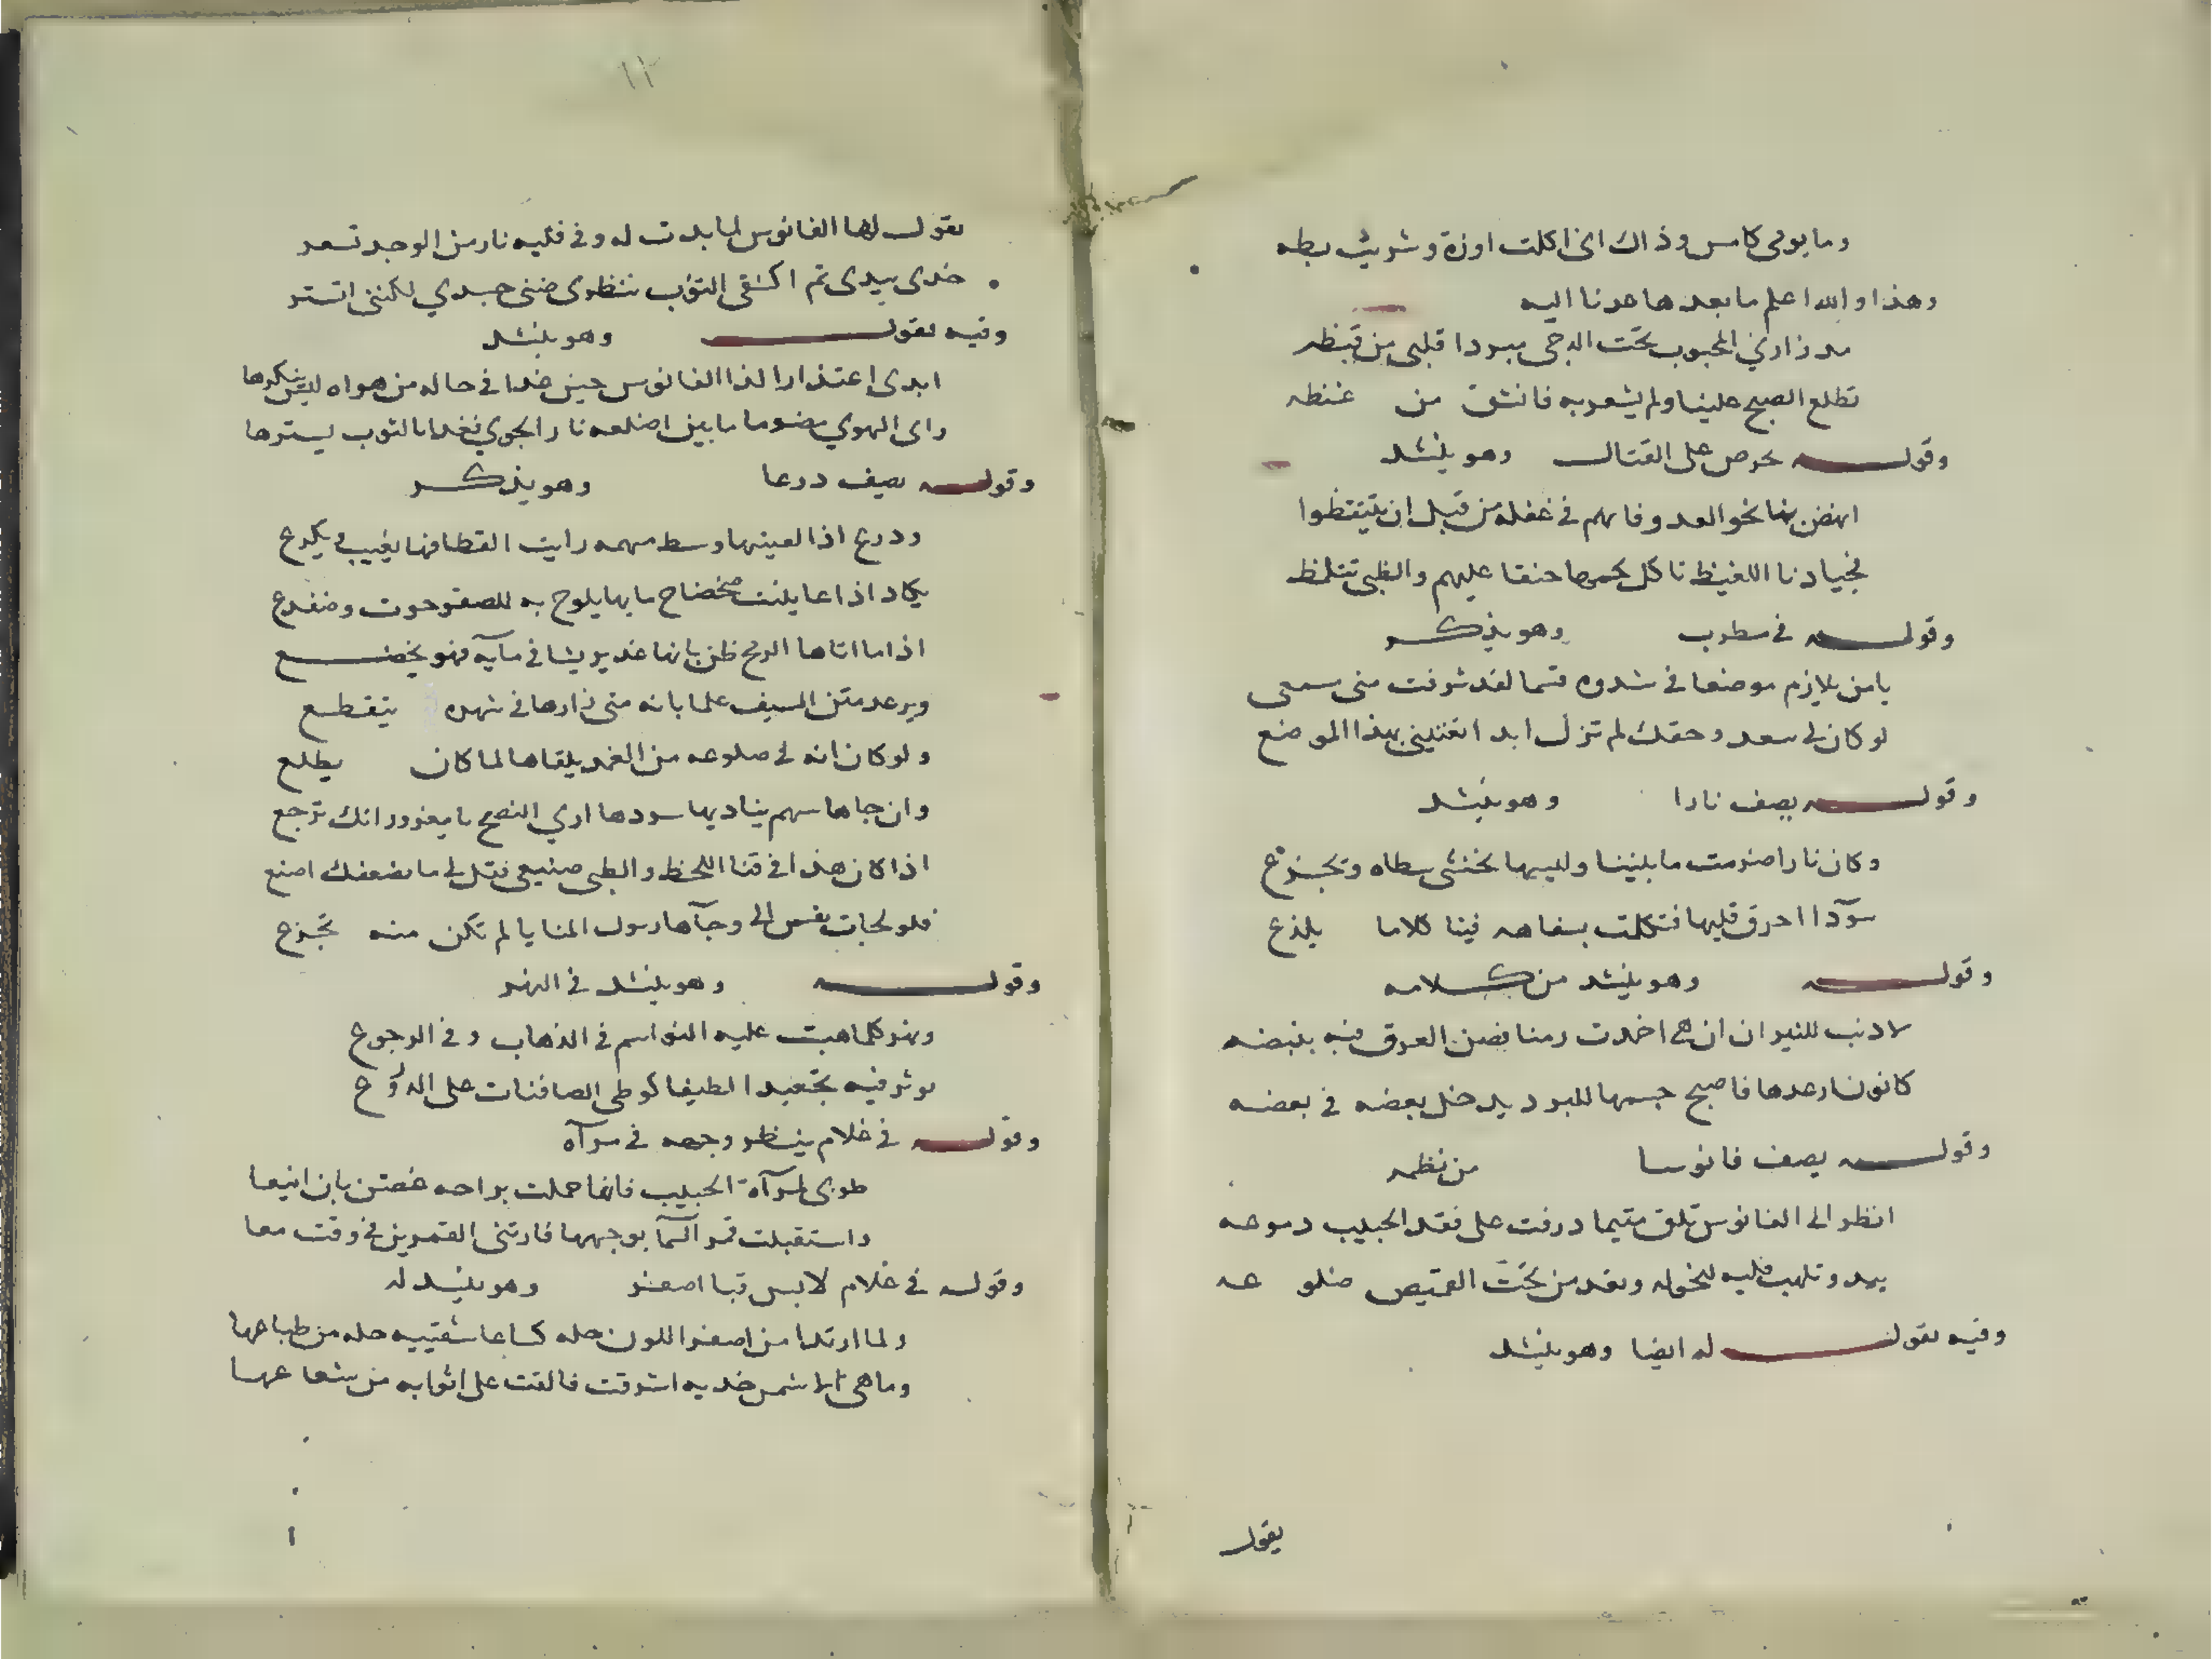 وما يومى كامس وذاك انى اكلت اوزة وشويت بطه
وهذا والله اعلم ما بعدها عدنا اليه
مد زارني المحبوب تحت الدجى مبردا قلبى من قيظه
تطلع الصبح علينا ولم يشعر به فانشق من غيظه
وقوله يحرص على القتال وهو ينشد
انهض بنا نحو العدو فانهم في غفلة من قبل ان يتيقظوا
فجيادنا للغيظ تاكل لجمها حنقا عليهم والظبى تتلمظ
وقوله في مطرب وهو يذكر
يا من يلازم موضعا في شدوه قسما لقد شرفت منى سمعى
لو كان لي سعد وحقك لم تزل ابدا تغنينى بهذا الموضع
وقوله يصف نارا وهو ينشد
وكان نارا ضرمت ما بيننا ولهيبها نخشى سطاه ونجزع
سودآ احرق قلبها فتكلمت بسفاهه فينا كلاما يلذع
وقوله وهو ينشد من كلامه
لا ذنب للنيران ان هى اخمدت رمنا نضن العرق فيه بنبضه
كانون ارعدها فاصبح جسمها للبرد يدخل بعضه في بعضه
وقوله يصف فانوسا من نظمه
انظر الى الفانوس تلق متيما درفت على فقد الحبيب دموعه
يبدو تلهب قلبه لنحوله وتعد من تحت القميص ضلوعه
وفيه يقول له ايضا وهو ينشد
يقول
١١
يقول لها الفانوس لما بدت له وفي قلبه نار من الوجد تسعر
خدى بيدى ثم اكشفى الثوب تنظرى ضنى جسدي لكننى اتستر
وفيه يقول وهو ينشد
ابدى اعتذارا لذا الفانوس حين غدا في حاله من هواه ليس ينكرها
راى الهوي مضرما ما بين اضلعه نار الجوي فغدا بالثوب يسترها
وقوله يصف درعا وهو يذكر
ودرع اذا لعينها وسط مهمه رايت القطا فيها يغيب ويكرع
يكاد اذا عاينت ضحضاح مايها يلوح به للصقر حوت وضفدع
اذا ما اتاها الرمح ظن بانها غدير يشا في مآيه فهو يخضع
ويرعد متن السيف علما بانه متى زارها في شهره يتقطع
ولو كان انه في ضلوعه من الغمد يلقاها لما كان يطلع
وان جاها سهم يناديها سردها اري النصح يا مغرور انك ترجع
اذا كان هذا في قنا الخط والظبى صنيعى فقل لي ما بضعفك اصنع
فلو لجات نفس الى وجآها رسول المنايا لم تكن منه تجزع
وقوله وهو ينشد في النهر
ونهر كلما هبت عليه النواسم في الذهاب وفي الرجوع
يوثر فيه تجعيدا لطيفا كوطى الصافنات على الدروع
وقوله في غلام ينظر وجهه في مرآه
طوبى لمرآة الحبيب فانها حملت براحه غصن بان اينعا
واستقبلت قمر السمآ بوجهها فارتنى القمرين في وقت معا
وقوله في غلام لابس قبا اصفر وهو ينشد له
ولما ارتدا من اصفر اللون حله كسا عاشقيه حله من طباعها
وما هى الا شمس خديه اشرقت فالقت على اثوابه من شعاعها